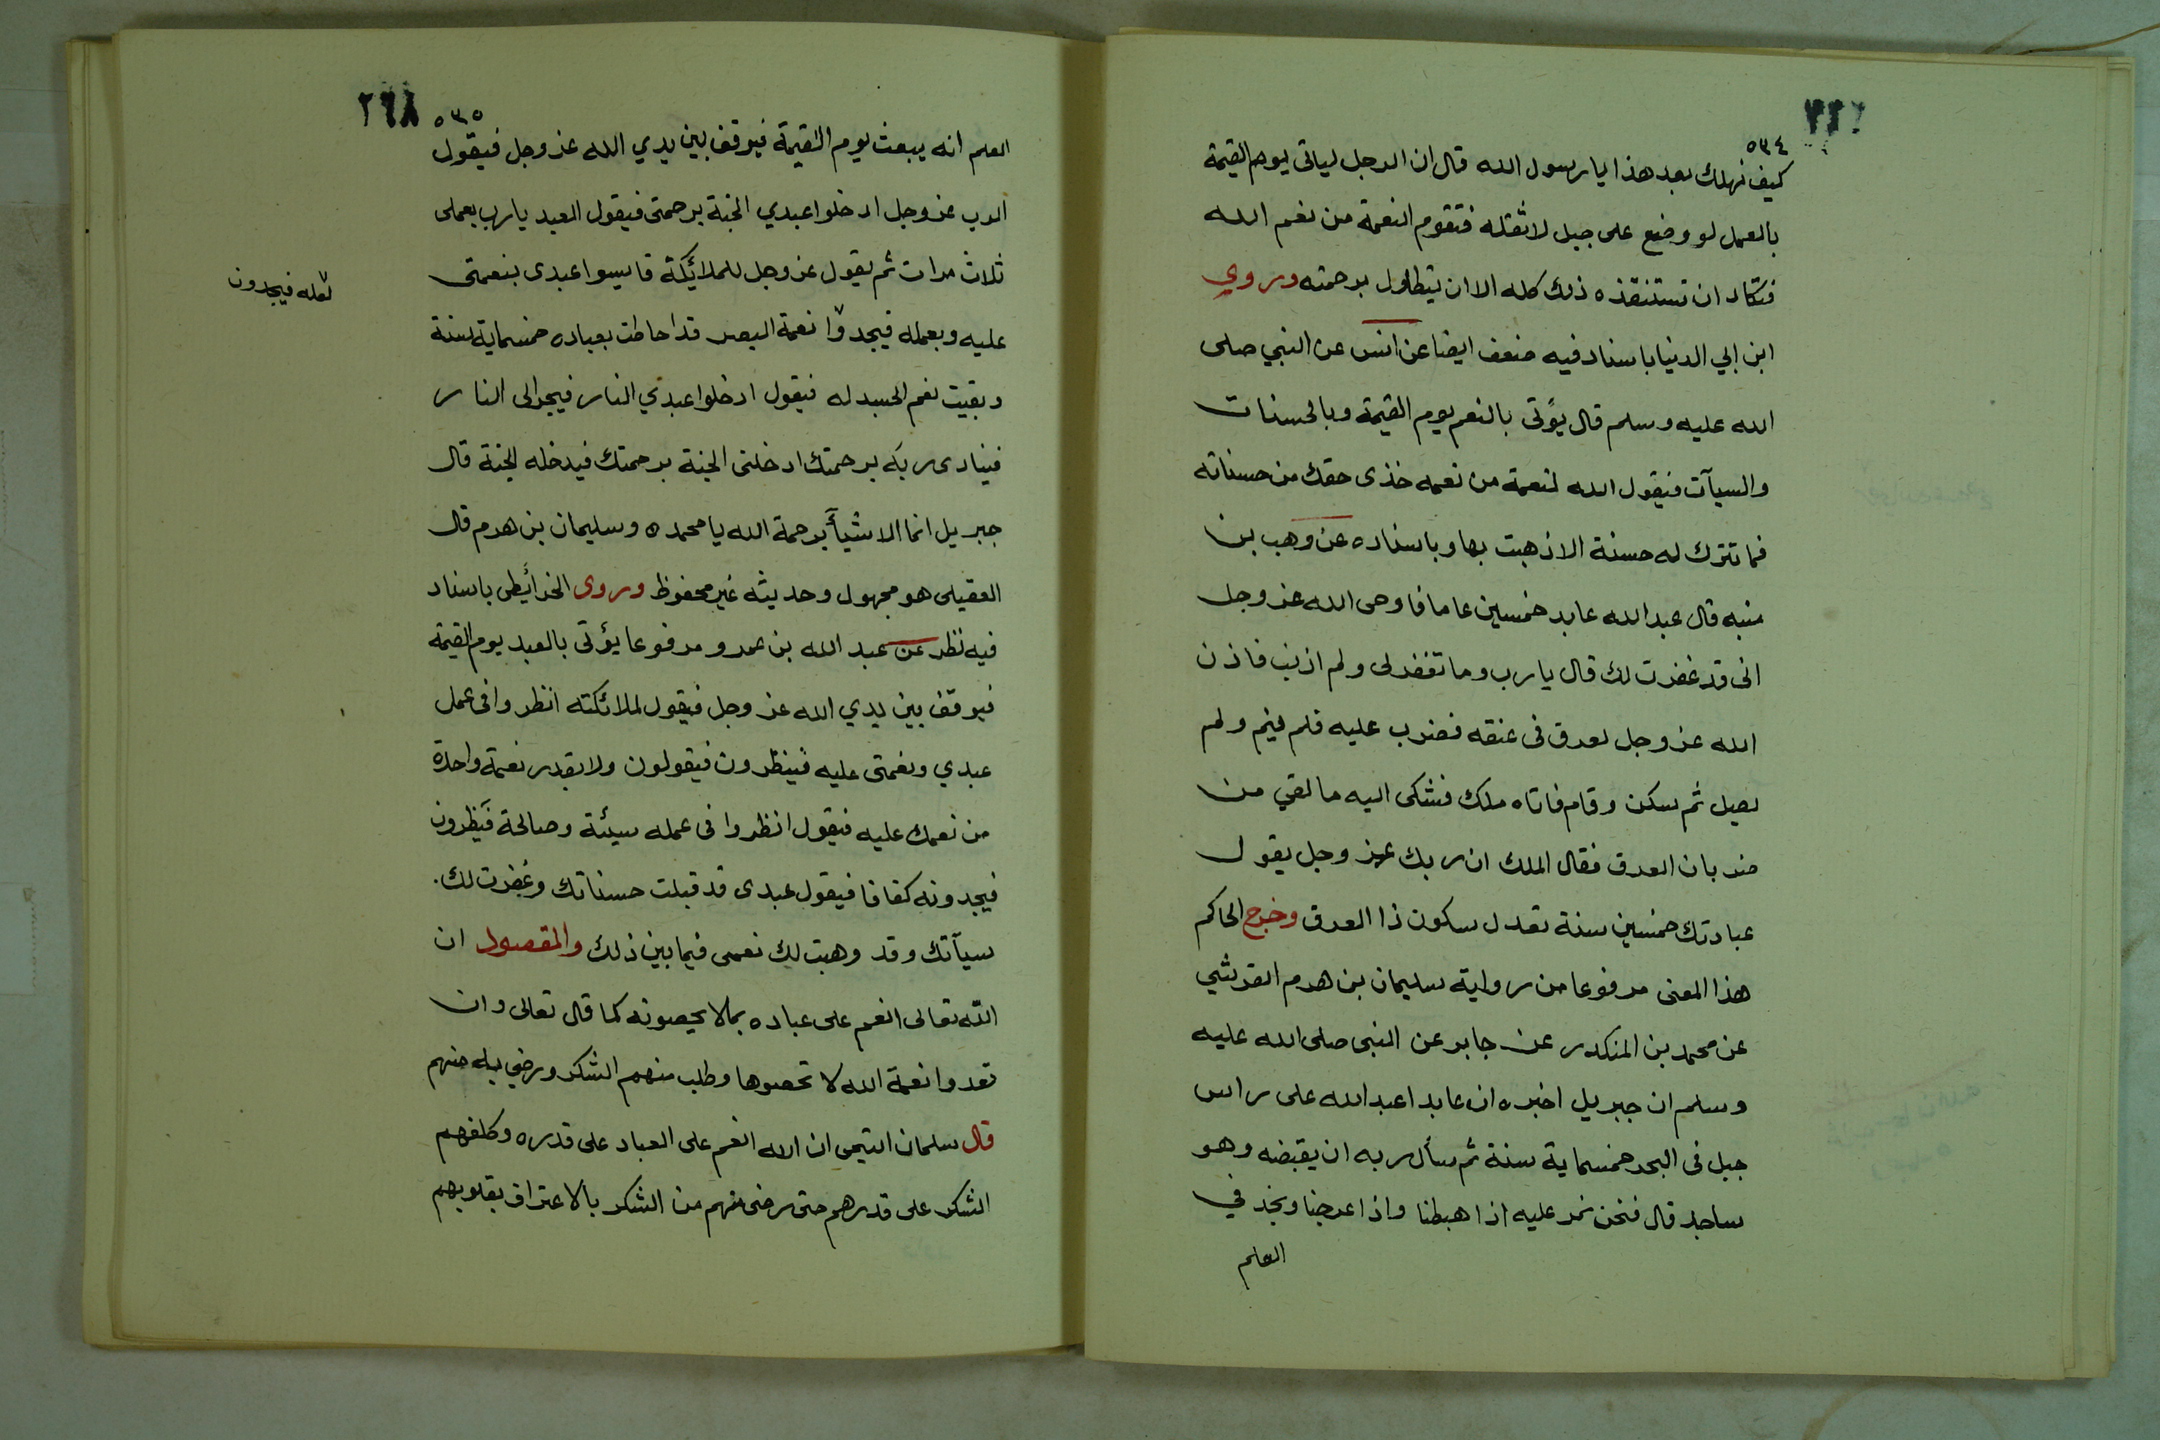 ٥٣٤
كيف نهلك بعد هذا يا رسول الله قال ان الرجل لياتى يوم القيمة
بالعمل لو وضع على جبل لاثقله فتقوم النعمة من نعم الله
فتكاد ان تستنقذه ذلك كله الا ان يتطاول برحمته وروي
ابن ابي الدنيا باسناد فيه ضعف ايضا عن انس عن النبي صلى
الله عليه وسلم قال يؤتى بالنعم يوم القيمة وبالحسنات
والسيآت فيقول الله لنعمة من نعمه خذى حقك من حسناته
فما تترك له حسنة الا ذهبت بها وباسناده عن وهب بن
منبه قال عبد الله عابد خمسين عاما فاوحى الله عز وجل
انى قد غفرت لك قال يا رب وما تغفر لى ولم اذنب فاذن
الله عز وجل لعرق فى عنقه فضرب عليه فلم ينم ولم
يصل ثم سكن وقام فاتاه ملك فشكى اليه ما لقي من
ضربان العرق فقال الملك ان ربك عز وجل يقول
عبادتك خمسين سنة تعدل سكون ذا العرق وخرج الحاكم
هذا المعنى مرفوعا من رواية سليمان بن هرم القرشي
عن محمد بن المنكدر عن جابر عن النبى صلى الله عليه
وسلم ان جبريل اخبره ان عابدا عبد الله على راس
جبل فى البحر خمسماية سنة ثم سأل ربه ان يقبضه وهو
ساجد قال فنحن نمر عليه اذا هبطنا واذا عرجنا ونجد في
العلم
٢٦٨
٥٣٥
العلم انه يبعث يوم القيمة فيوقف بين يدي الله عز وجل فيقول
الرب عز وجل ادخلوا عبدي الجنة برحمتى فيقول العبد يا رب بعملى
ثلاث مرات ثم يقول عز وجل للملائكة قايسوا عبدى بنعمتى
لعله فيجدون
عليه وبعمله فيجدوا نعمة البصر قد احاطت بعباده خمسماية سنة
وبقيت نعم الجسد له فيقول ادخلوا عبدي النار فيجر الى النار
فينادى ربه برحمتك ادخلنى الجنة برحمتك فيدخله الجنة قال
جبريل انما الاشيآء برحمة الله يا محمد ٥ وسليمان بن هرم قال
العقيلى هو مجهول وحديثه غير محفوظ وروى الخرائطى باسناد
فيه نظر عن عبد الله بن عمرو مرفوعا يؤتى بالعبد يوم القيمة
فيوقف بين يدي الله عز وجل فيقول لملائكته انظروا فى عمل
عبدي ونعمتى عليه فينظرون فيقولون ولا بقدر نعمة واحدة
من نعمك عليه فيقول انظروا فى عمله سيئة وصالحة فينظرون
فيجدونه كفافا فيقول عبدى قد قبلت حسناتك وغفرت لك
سيآتك وقد وهبت لك نعمى فيما بين ذلك والمقصود ان
الله تعالى انعم على عباده بما لا يحصونه كما قال تعالى وان
تعدوا نعمة الله لا تحصوها وطلب منهم الشكر ورضي به منهم
قال سلمان التيمى ان الله انعم على العباد على قدره وكلفهم
الشكر على قدرهم حتى رضى منهم من الشكر بالاعتراف بقلوبهم